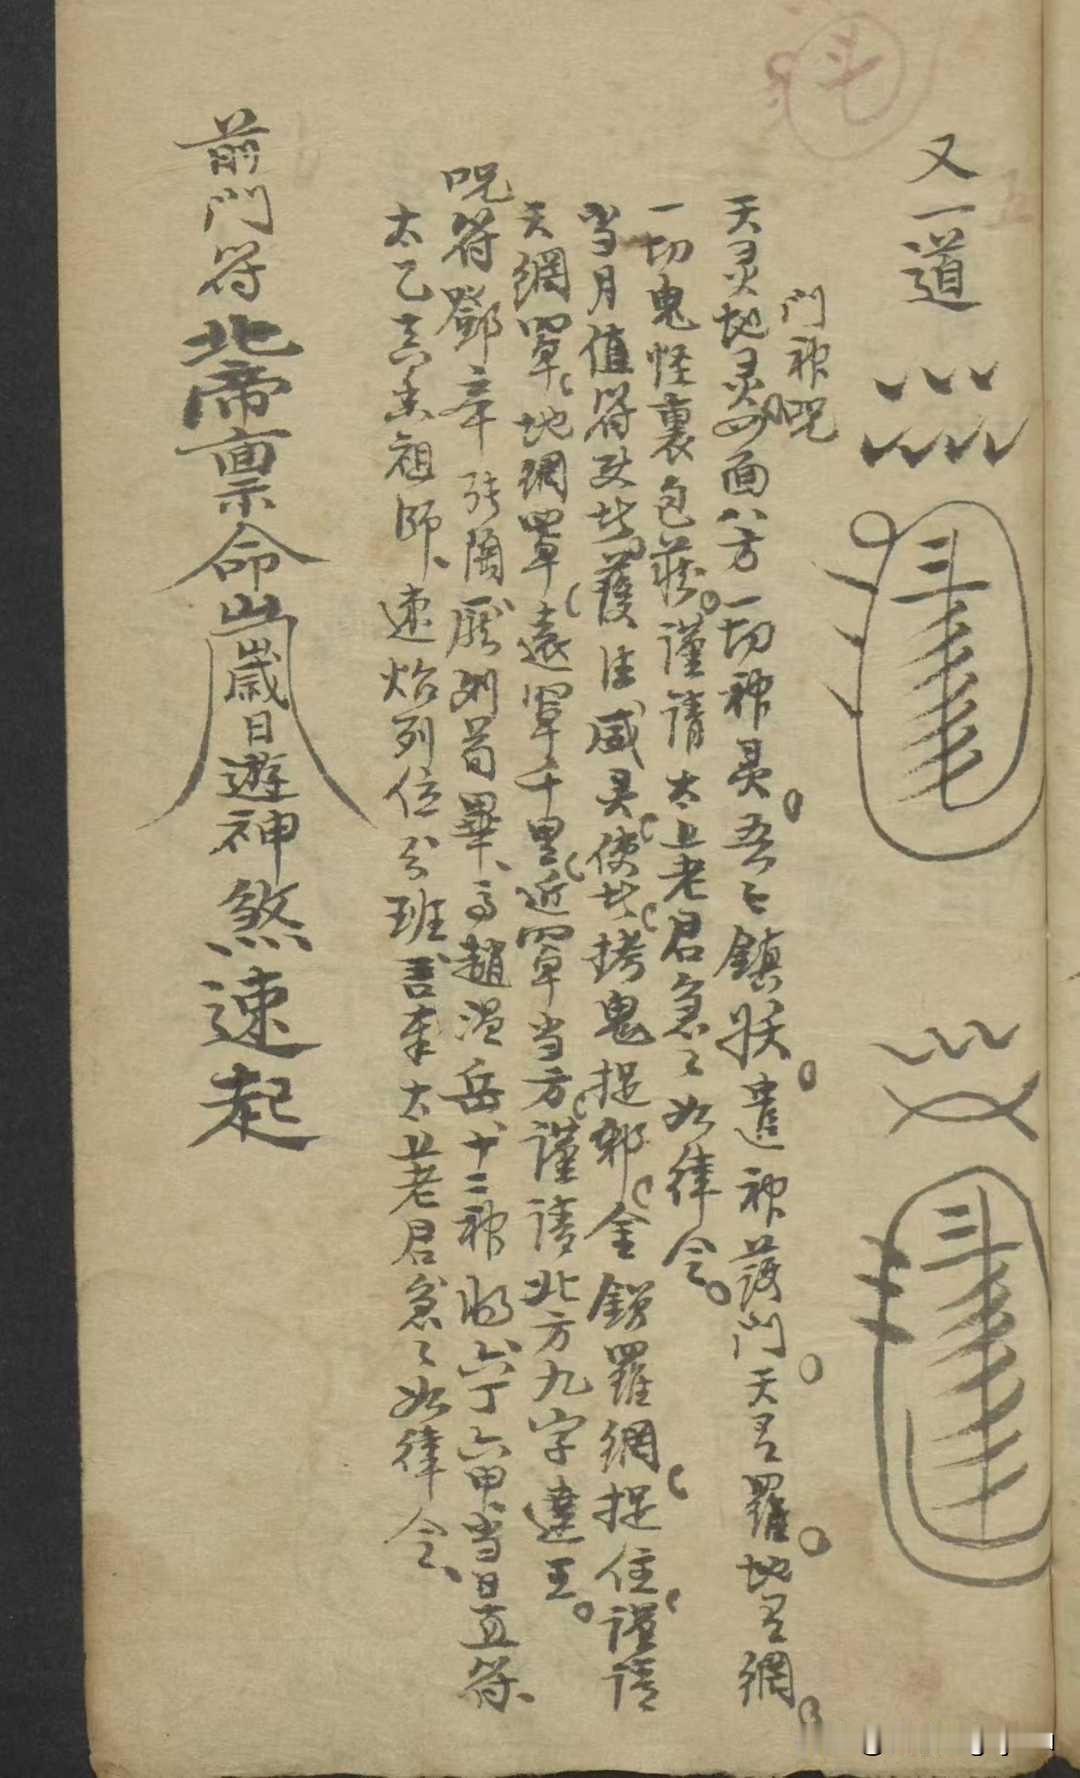 又一道
門神咒
天灵地灵四面八方一切神灵吾今鎮妖遣神護門天有羅地有網
一切鬼怪裏包藏謹請太上老君急々如律令
当月值符使者護法威灵使者拷鬼捉邪金鎖羅網捉住謹請
天網罩地網罩遠罩千里近罩当方謹請北方九字達王
咒符鄧辛張陶龐刘苟畢馬趙温岳十二神将六丁六甲当日直符
太乙真祖師速焰列位分班吾奉太上老君急々如律令
前門符北帝禀命歲日遊神煞速起